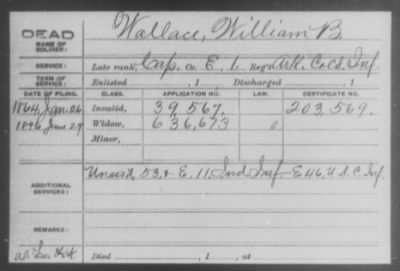 DEAD
NAME OF SOLDIER: Wallace, William B.
SERVICE: Late rank, Cap. Co. E, 1. Reg't Ark. Inf.
TERM OF SERVICE: Enlisted , 1 Discharged , 1
DATE OF FILING. CLASS. APPLICATION NO. LAW. CERTIFICATE NO.
1864, Jan. 26 Invalid, 39,567. 203,569.
1896 June 29 Widow, 636,673
Minor,
ADDITIONAL SERVICES: 53, & E. 11, Ind Inf. E 46, U. S. C. Inf.
REMARKS:
Died , 1 , at